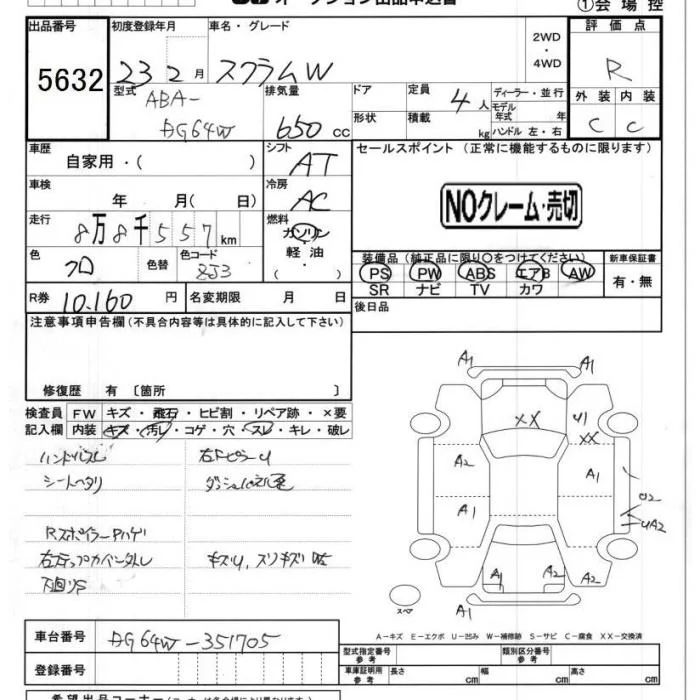 オークション出品申込書
①会場控
出品番号
5632
初度登録年月
23 2月
車名・グレード
スクラムW
2WD・4WD
評価点
R
型式
ABA-
DG64W
排気量
650 cc
ドア
形状
定員
4人
積載
kg
ディーラー・並行
モデル年式 年
ハンドル 左・右
外装
内装
C
C
車歴
自家用・( )
シフト
AT
セールスポイント (正常に機能するものに限ります)
車検
年 月( 日)
冷房
AC
NOクレーム・売切
走行
8万8千557km
燃料
ガソリン
軽油
( )
色
クロ
色替
色コード
ZJ3
装備品(純正品に限り○をつけてください)
PS PW ABS エアB AW
SR ナビ TV カワ
新車保証書
有・無
R券
10.160円
名変期限 月 日
後日品
注意事項申告欄(不具合内容等は具体的に記入して下さい)
修復歴 有〔箇所 〕
検査員記入欄
FW キズ・飛石・ヒビ割・リペア跡・×要
内装 キズ・汚レ・コゲ・穴・スレ・キレ・破レ
ハンドルスレ
右FピラーU
シートヘタリ
Rスポイラー Pハゲ
右ステップカバー外レ
下廻りS
A1
A1
XX
U1
XX
A2
A1
A1
U2
UA2
A1
A2
A2
A1
スペア
A-キズ E-エクボ U-凹み W-補修跡 S-サビ C-腐食 XX-交換済
車台番号
DG64W-351705
登録番号
型式指定番号
参考
類別区分番号
参考
車庫証明用
参考
長さ cm
幅 cm
高さ cm
希望出品コーナー